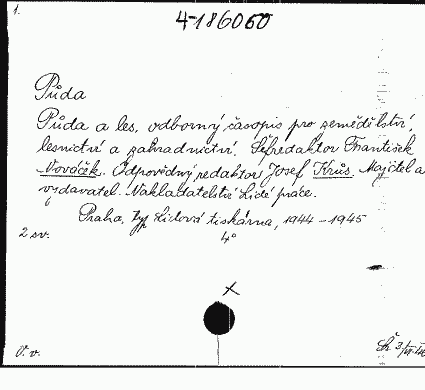 1.
4-186060
Půda
Půda a les, odborný časopis pro zemědělství,
lesnictví a zahradnictví. Šéfredaktor František
Nováček. Odpovědný redaktor Josef Krůs. Majitel a
vydavatel Nakladatelství Lidé práce.
Praha, Typ. Lidová tiskárna, 1944-1945
2 sv. 4°
x
V. v.